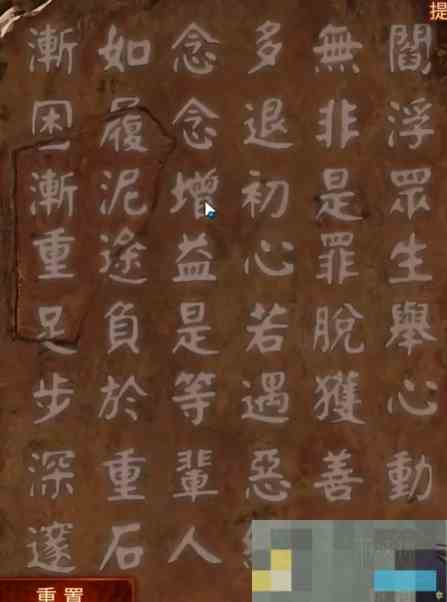 提
閻浮眾生舉心動
無非是罪脫獲善
多退初心若遇惡
念念增益是等輩人
如履泥途負於重石
漸困漸重足步深邃
重置